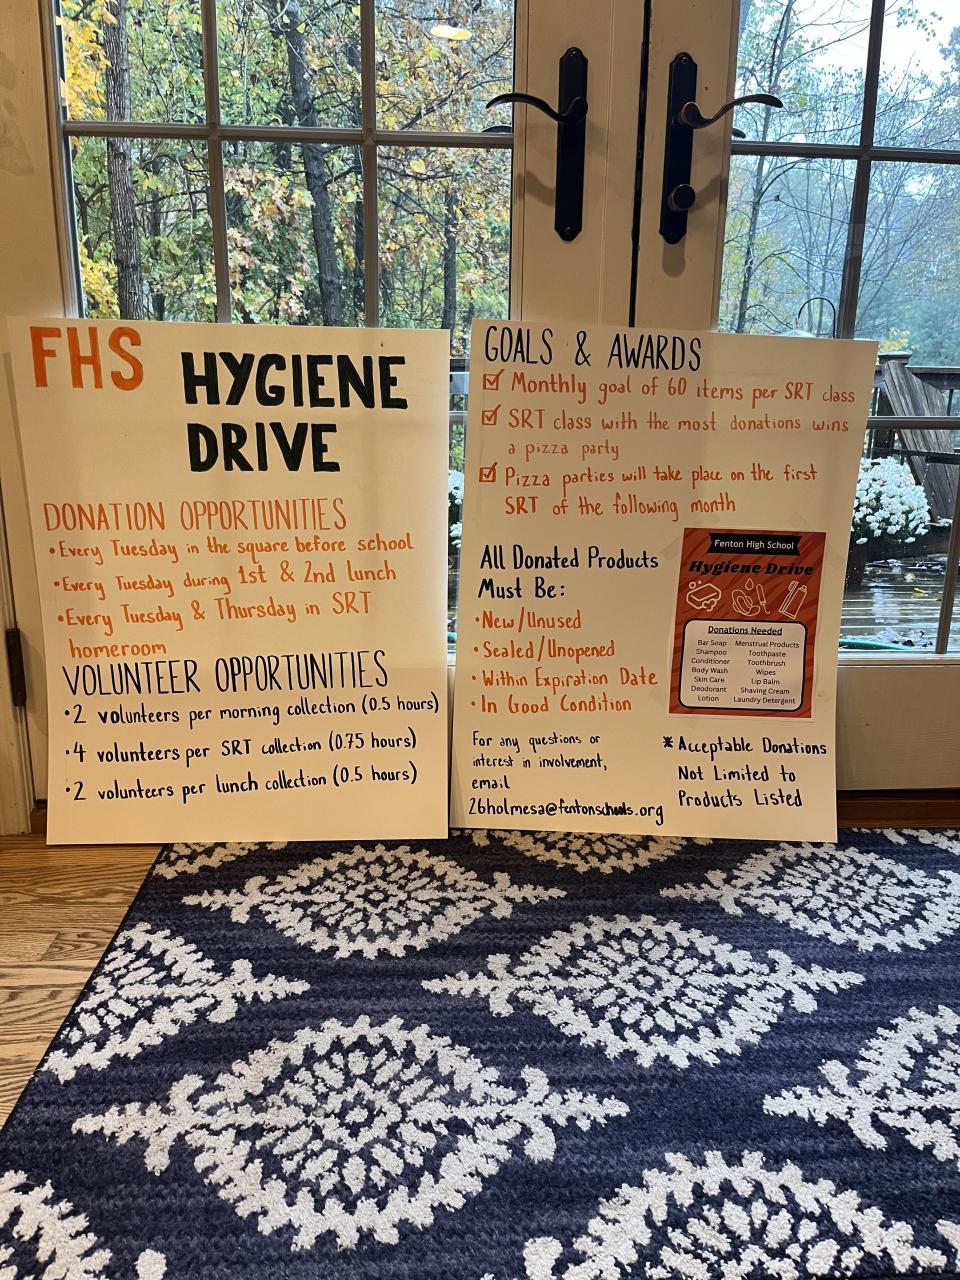 FHS HYGIENE
DRIVE
DONATION OPPORTUNITIES
•Every Tuesday in the square before school
•Every Tuesday during 1st & 2nd lunch
•Every Tuesday & Thursday in SRT
homeroom
VOLUNTEER OPPORTUNITIES
•2 volunteers per morning collection (0.5 hours)
•4 volunteers per SRT collection (0.75 hours)
•2 volunteers per lunch collection (0.5 hours)
GOALS & AWARDS
☑ Monthly goal of 60 items per SRT class
☑ SRT class with the most donations wins
a pizza party
☑ Pizza parties will take place on the first
SRT of the following month
All Donated Products
Must Be:
•New/Unused
•Sealed/Unopened
•Within Expiration Date
•In Good Condition
For any questions or
interest in involvement,
email
26holmesa@fentonschools.org
Fenton High School
Hygiene Drive
Donations Needed
Bar Soap
Shampoo
Conditioner
Body Wash
Skin Care
Deodorant
Lotion
Menstrual Products
Toothpaste
Toothbrush
Wipes
Lip Balm
Shaving Cream
Laundry Detergent
* Acceptable Donations
Not Limited to
Products Listed